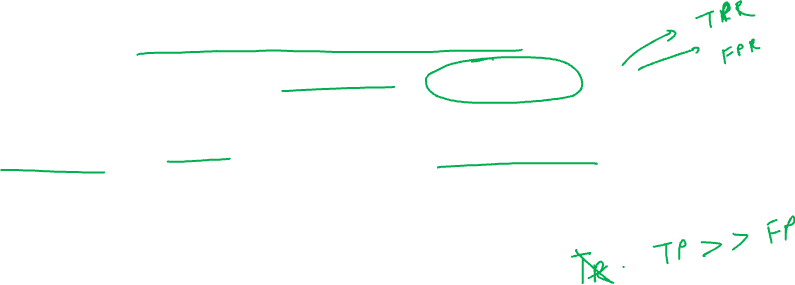 TPR
FPR
TP >> FP